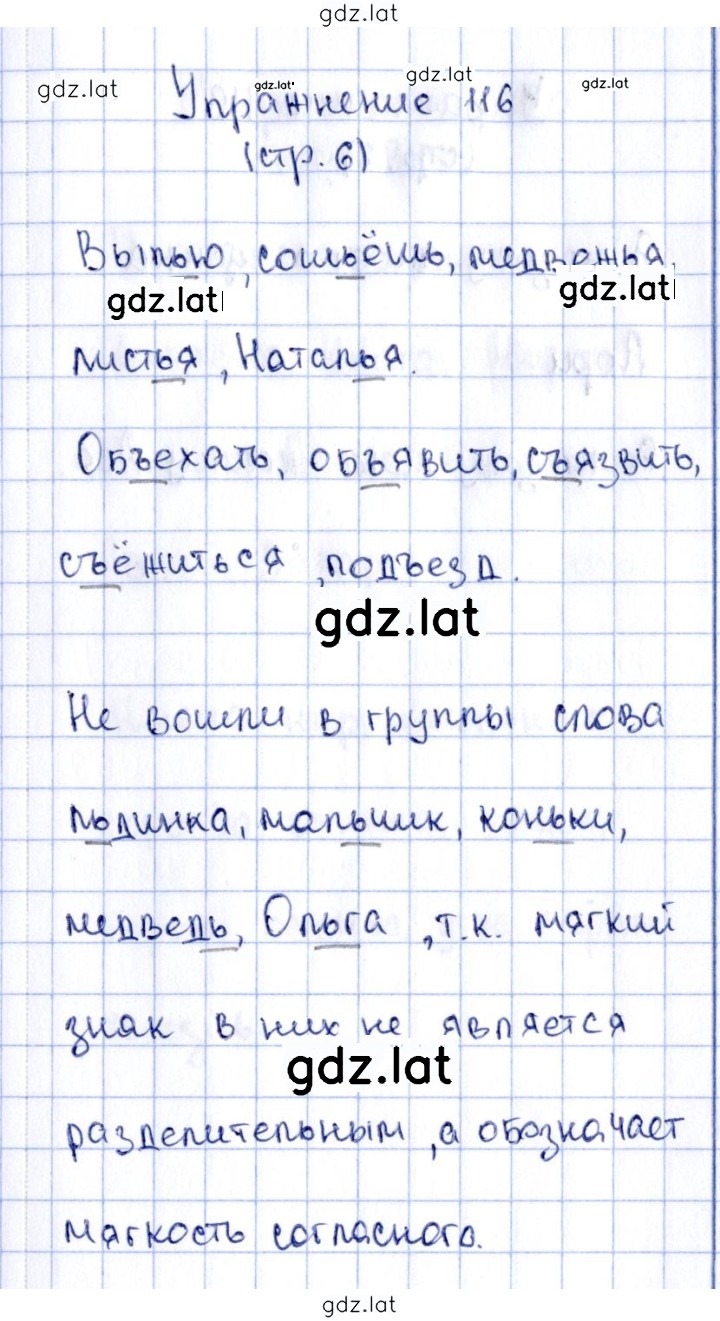 gdz.lat
gdz.lat gdz.lat gdz.lat gdz.lat
Упражнение 116
(стр. 6)
Выпью, сошьёшь, медвежья,
gdz.lat gdz.lat
листья, Наталья.
Объехать, объявить, съязвить,
съёжиться, подъезд.
gdz.lat
Не вошли в группы слова
льдинка, мальчик, коньки,
медведь, Ольга, т.к. мягкий
знак в них не является
gdz.lat
разделительным, а обозначает
мягкость согласного.
gdz.lat